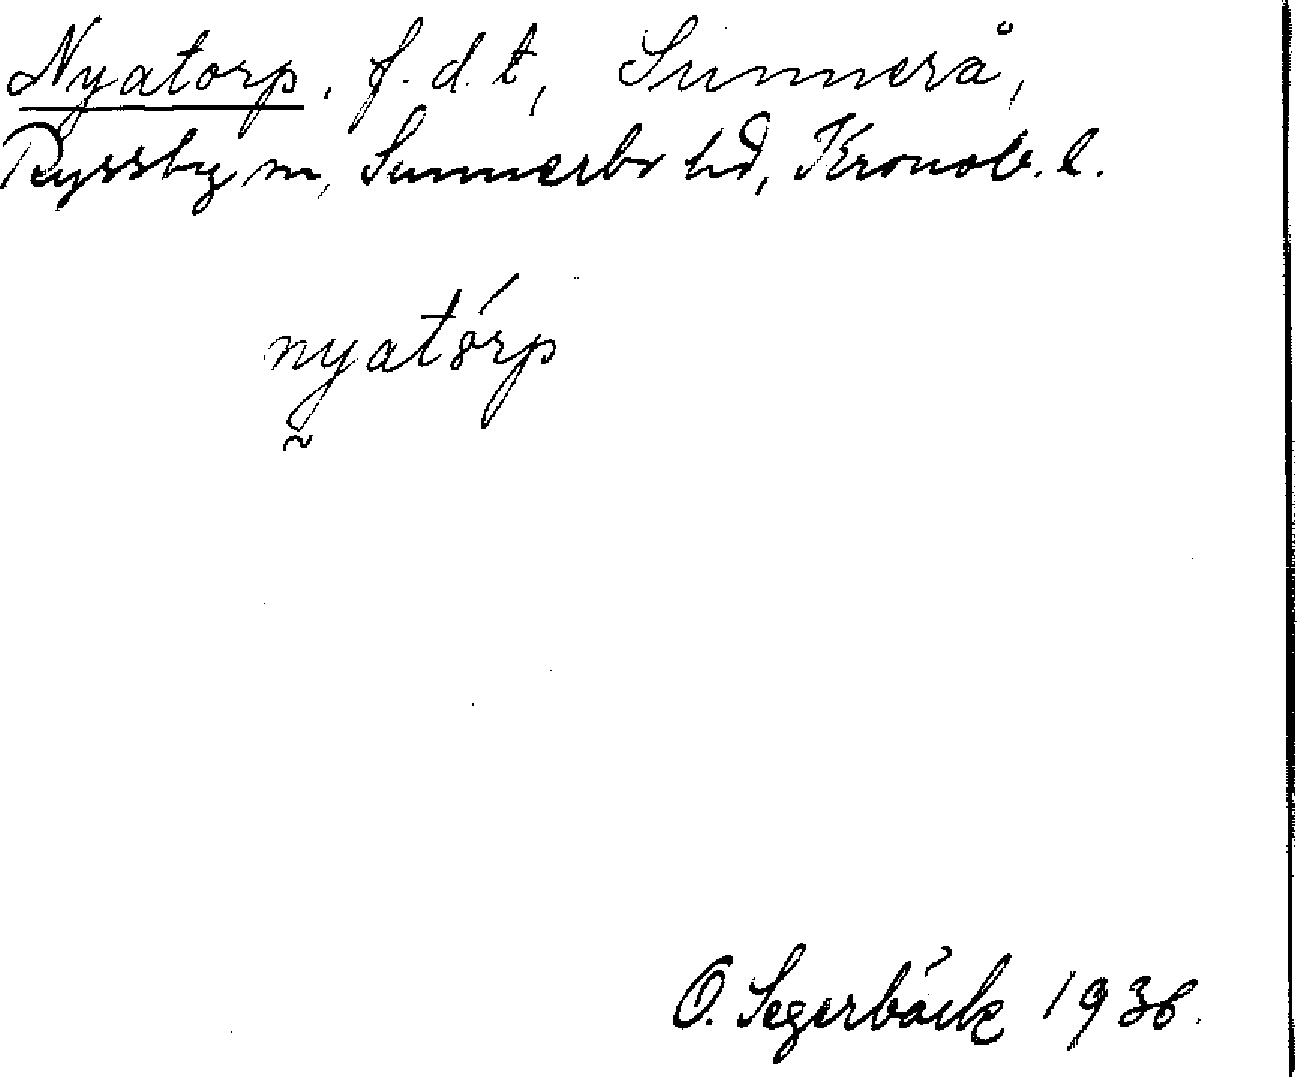 Nyatorp, f.d.t, Sunnerå,
Ryssby sn, Sunnerbo hd, Kronob. l.
nyatórp
~
O. Segerbäck 1936.